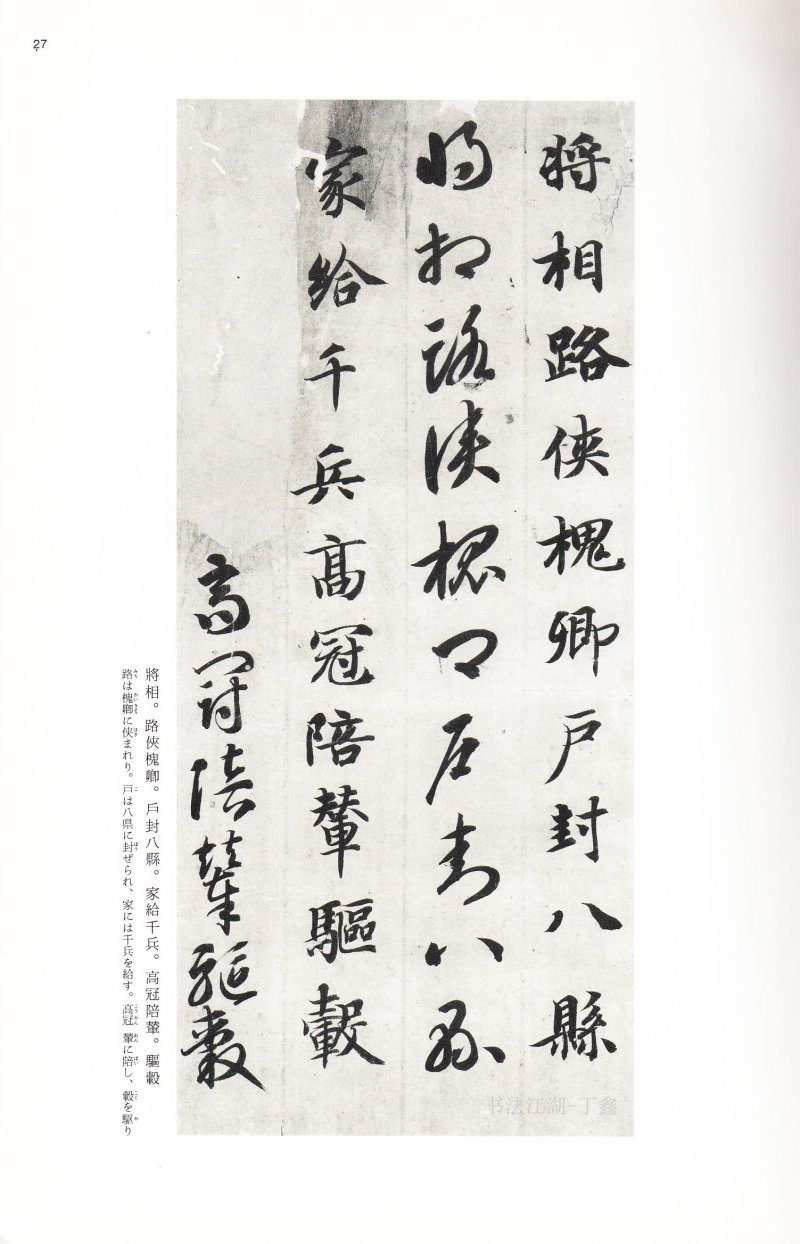 27
将相路侠槐卿戸封八縣
将相路侠槐卿戸封八縣
家給千兵高冠陪輦驅轂
高冠陪輦驅轂
將相。路俠槐卿。戶封八縣。家給千兵。高冠陪輦。驅轂
路は槐卿に俠まれり。戸は八県に封ぜられ、家には千兵を給す。高冠 輦に陪し、轂を駆り
书法江湖-丁鑫